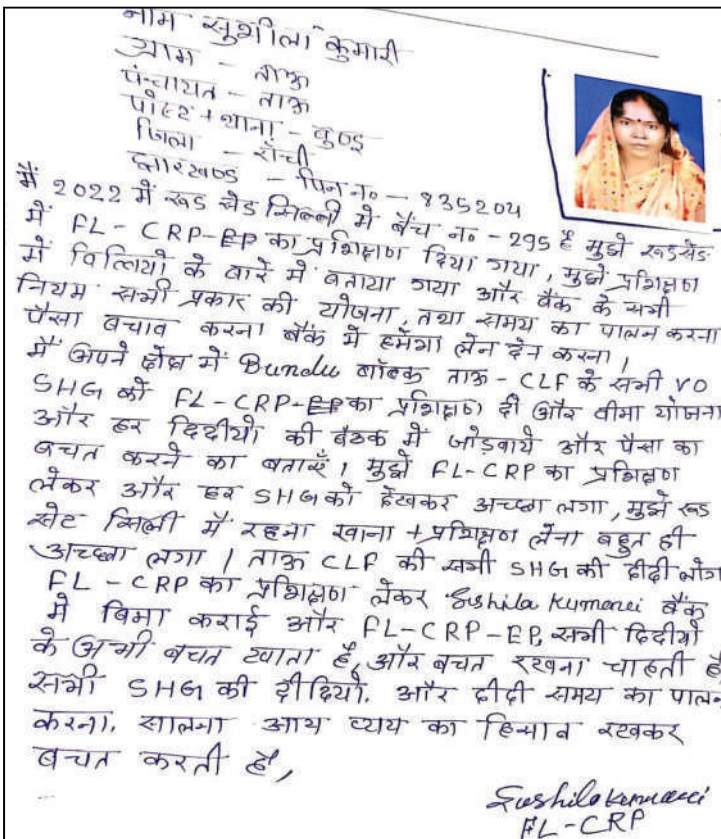 नाम सुशीला कुमारी
ग्राम - ताऊ
पंचायत - ताऊ
पोस्ट + थाना - बुण्डू
जिला - राँची
झारखण्ड - पिन नо - 835204
मैं 2022 में रूड सेड सिल्ली में बैच नо - 295 है मुझे रूडसेड
में FL - CRP-EP का प्रशिक्षण दिया गया, मुझे प्रशिक्षण
में वित्तियो के बारे में बताया गया और बैंक के सभी
नियम सभी प्रकार की योजना, तथा समय का पालन करना
पैसा बचाव करना बैंक में हमेंशा लेन देन करना।
मैं अपने क्षेत्र में Bundu बॉल्क ताऊ - CLF के सभी VO
SHG को FL - CRP-EP का प्रशिक्षण दी और बीमा योजना
और हर दिदीयो की बैठक में जोड़वाये और पैसा का
बचत करने का बताएँ। मुझे FL-CRP का प्रशिक्षण
लेकर और हर SHG को देखकर अच्छा लगा, मुझे रूड
सेट सिली में रहना खाना + प्रशिक्षण लेना बहुत ही
अच्छा लगा। ताऊ CLF की सभी SHG की दीदी लोग
FL - CRP का प्रशिक्षण लेकर Sushila Kumari बैंक
में बिमा कराई और FL-CRP-EP, सभी दिदीयो
के अभी बचत खाता है, और बचत रखना चाहती है
सभी SHG की दीदियो. और दीदी समय का पालन
करना. सालना आय व्यय का हिसाब रखकर
बचत करती है,
Sushila Kumari
FL-CRP